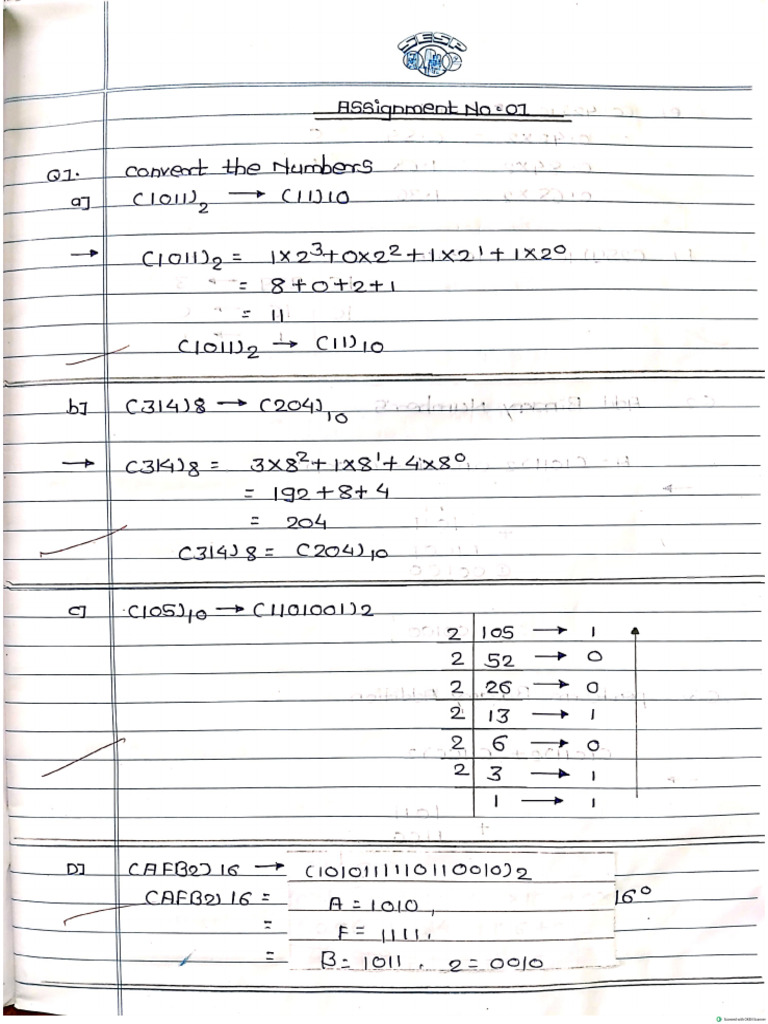 SESP
Assignment No:01
Q1. Convert the Numbers
a] (1011)2 → (11)10
→ (1011)2 = 1×2³+0×2²+1×2¹+1×2⁰
= 8+0+2+1
= 11
(1011)2 → (11)10
b] (314)8 → (204)10
→ (314)8 = 3×8²+1×8¹+4×8⁰
= 192+8+4
= 204
(314)8 = (204)10
c] (105)10 → (1101001)2
2 105 → 1
2 52 → 0
2 26 → 0
2 13 → 1
2 6 → 0
2 3 → 1
1 → 1
D] (AFB2)16 → (1010111110110010)2
(AFB2)16 = A = 1010, 16⁰
= F = 1111,
= B = 1011, 2 = 0010
Scanned with OKEN Scanner